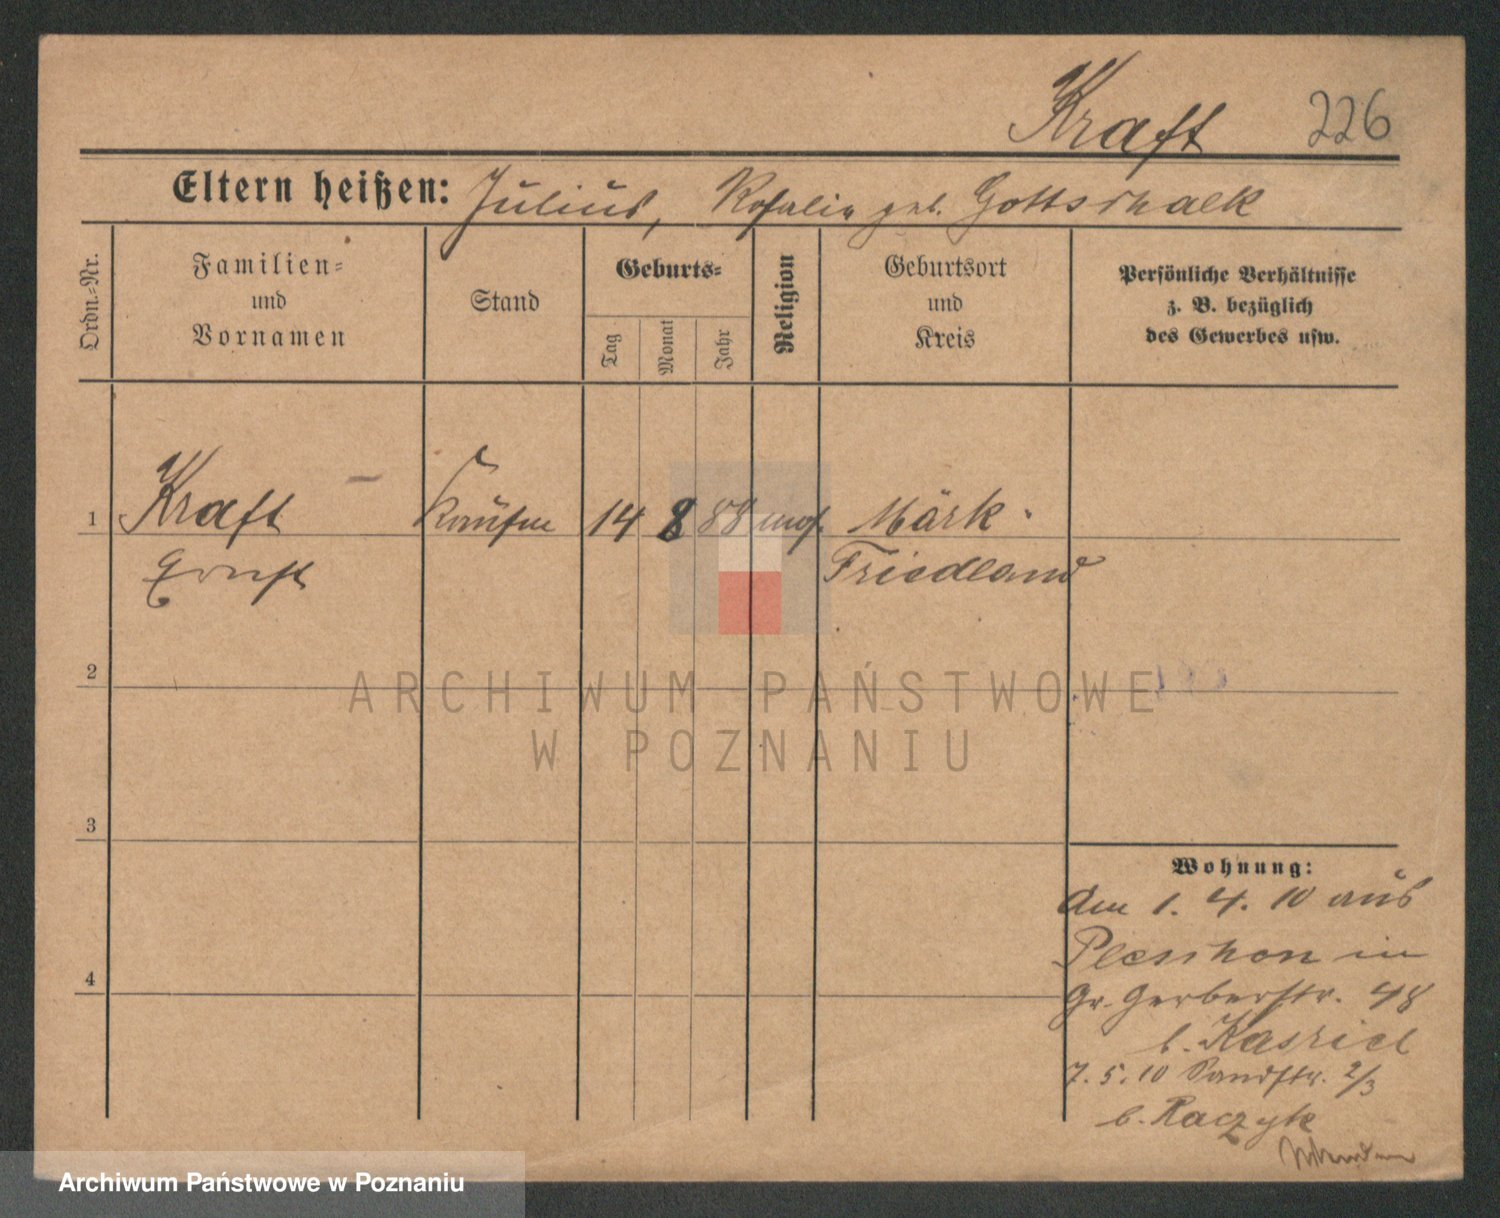 Kraft 226
Eltern heißen: Julius, Rosalie geb. Gottschalk
Ordn.-Nr.
Familien-
und
Vornamen
Stand
Geburts-
Tag
Monat
Jahr
Religion
Geburtsort
und
Kreis
Persönliche Verhältnisse
z. B. bezüglich
des Gewerbes usw.
1 Kraft Kaufm 14 8 88 mos. Märk.
Ernst Friedland
2
ARCHIWUM PAŃSTWOWE
W POZNANIU
3
Wohnung:
Am 1. 4. 10 aus
Pleschen in
4
Gr. Gerberstr. 48
b. Kasriel
7. 5. 10 Sandstr. 2/3
b. Raczyk
Archiwum Państwowe w Poznaniu